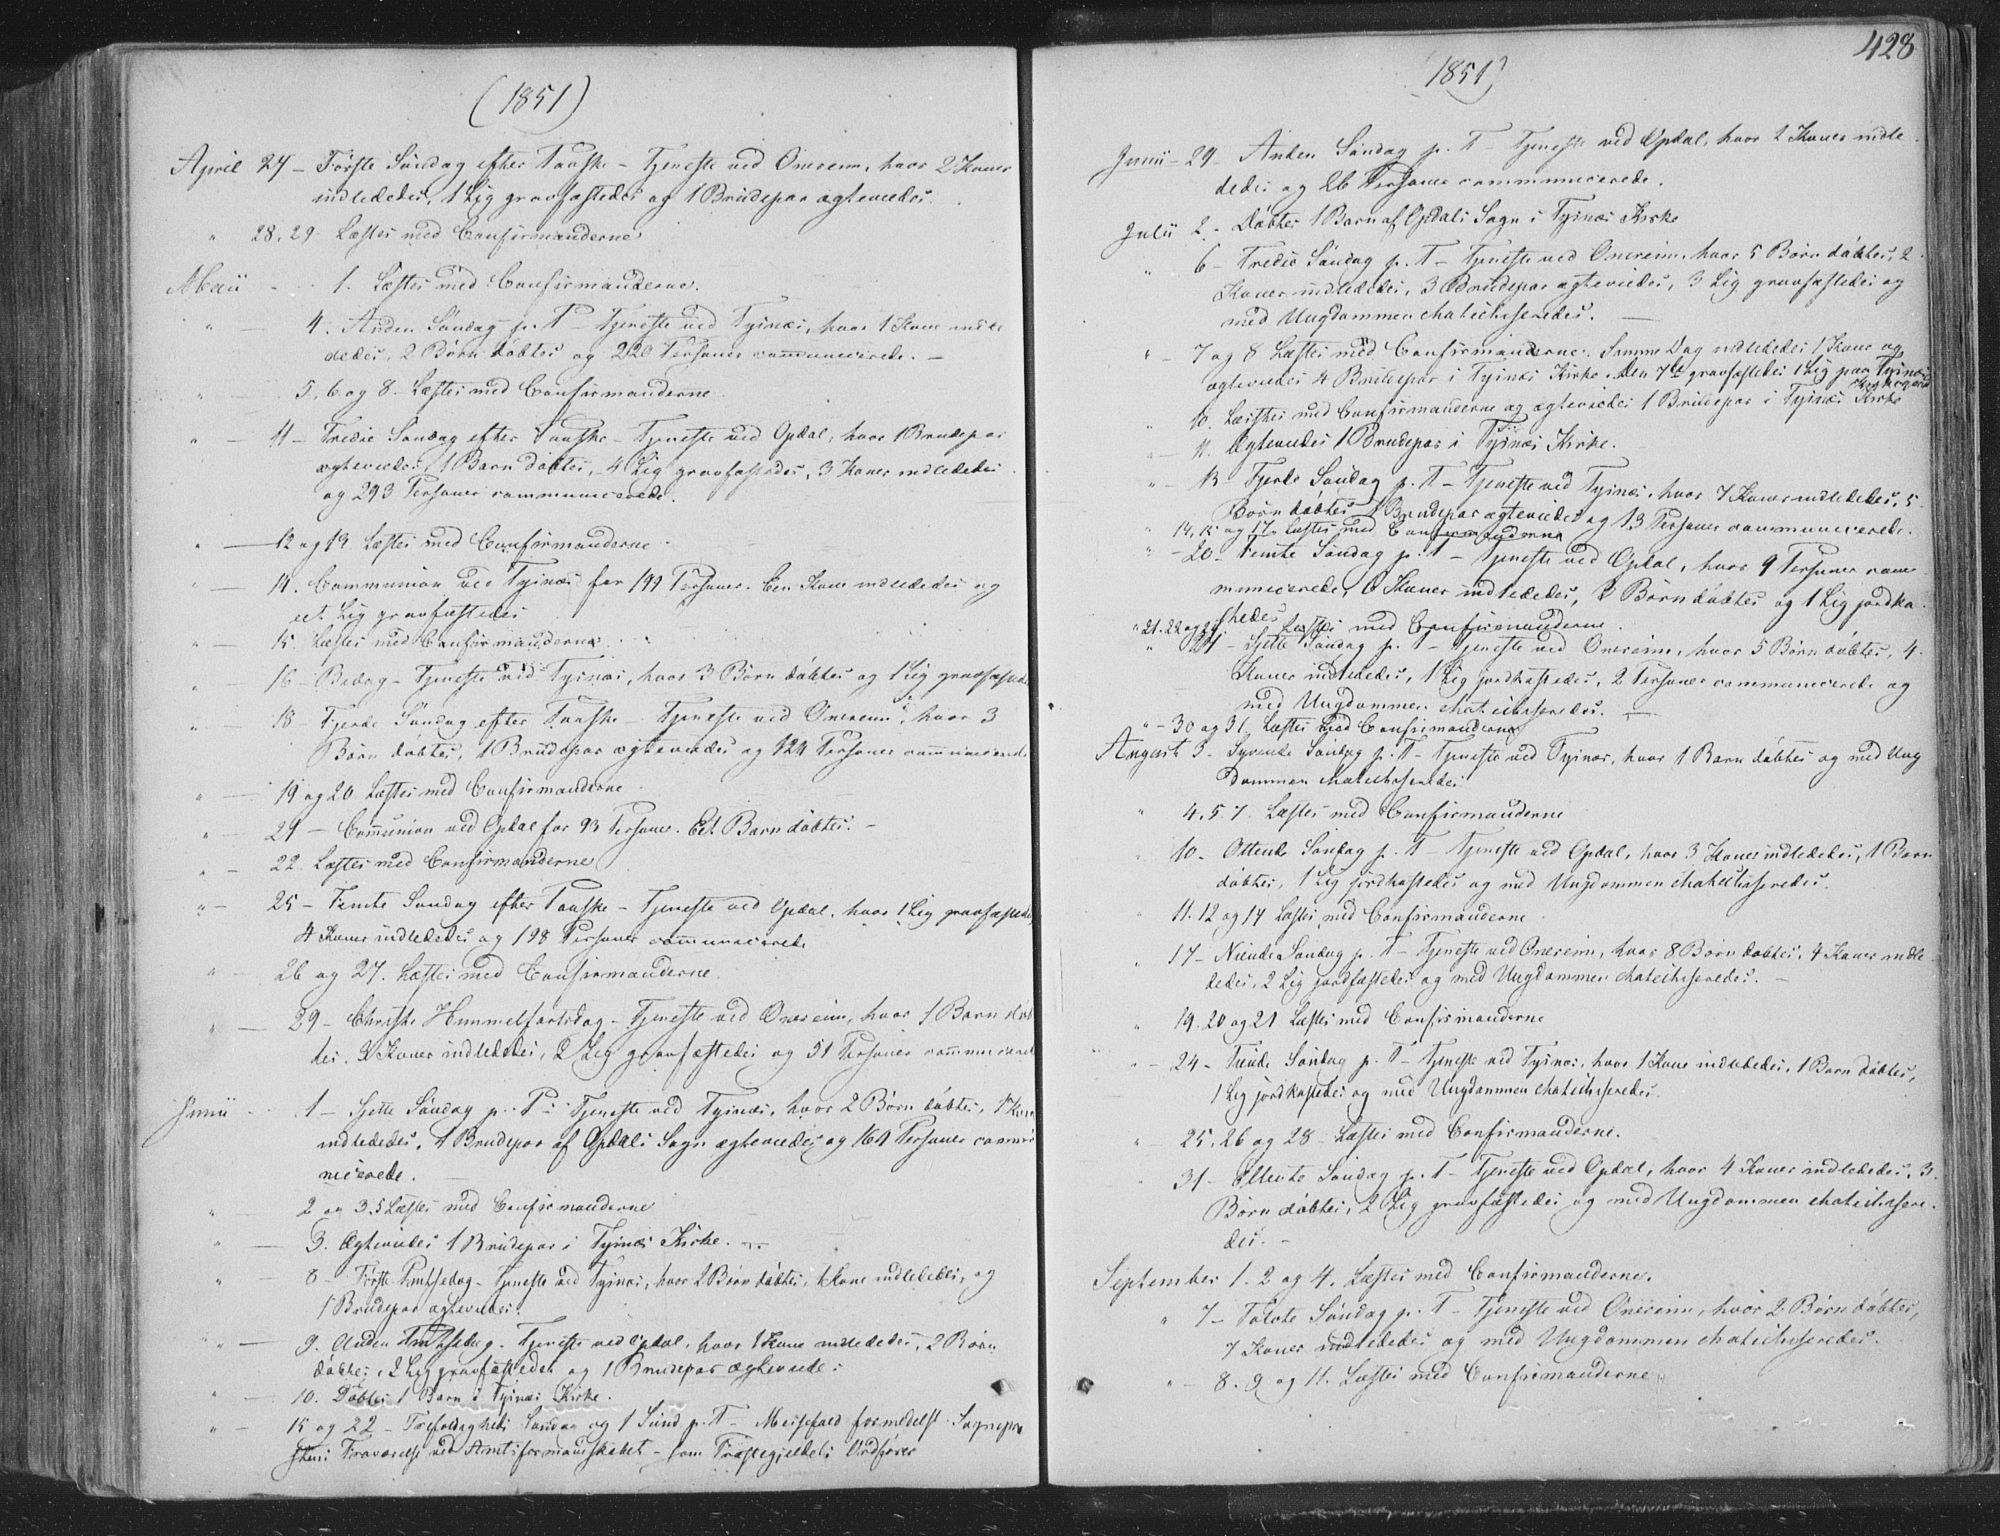 (1851)
April 27 – Første Søndag efter Paaske – Tjeneste ved Onereim, hvor 2 Koner
indledede, 1 Lig gravfæstedes og 1 Brudepar ægteviedes.
" 28, 29 Læstes med Confirmanderne
Maii – 1. Læstes med Confirmanderne.
" – 4. Anden Søndag p. P – Tjeneste ved Tysnæs, hvor 1 Kone indle
dedes, 2 Børn døbtes og 220 Personer communicerede. –
5, 6 og 8 – Læstes med Confirmanderne
" – 11 – Tredie Søndag efter Paaske – Tjeneste ved Opdal, hvor 1 Brudepar
ægteviedes, 1 Barn døbtes, 4 Lig gravfæstedes, 3 Koner indlededes
og 293 Personer communicerede.
" – 12 og 13 Læstes med Confirmanderne
" – 14. Communion ved Tysnæs for 199 Personer. Een Kone indlededes og
eet Lig gravfæstedes
" – 15. Læstes med Confirmanderne
" – 16 – Bededag – Tjeneste ved Tysnæs, hvor 3 Børn døbtes og 1 Lig gravfæstedes
" – 18 – Fjerde Søndag efter Paaske – Tjeneste ved Onereim, hvor 3
Børn døbtes, 1 Brudepar ægteviedes og 124 Personer communicerede
" – 19 og 20 Læstes med Confirmanderne
" – 21 – Communion ved Opdal for 93 Personer. Eet Barn døbtes. –
" – 22 Læstes med Confirmanderne
" – 25 – Femte Søndag efter Paaske – Tjeneste ved Opdal, hvor 1 Lig gravfæstedes
4 Koner indlededes og 198 Personer communicerede
" – 26 og 27. Læstes med Confirmanderne.
" – 29 – Christi Himmelfartsdag – Tjeneste ved Onereim, hvor 1 Barn døb
tes. 3 Koner indlededes, 2 Lig gravfæstedes og 51 Personer communicerede
Junii – 1 – Sjette Søndag p. P – Tjeneste ved Tysnæs, hvor 2 Børn døbtes, 1 Kone
indlededes, 1 Brudepar af Opdals Sogn ægteviedes og 164 Personer commu
nicerede.
" – 2 og 3. 5 Læstes med Confirmanderne
" – 3. Ægteviedes 1 Brudepar i Tysnæs Kirke. –
" – 8 – Første Pintsedag – Tjeneste ved Tysnæs, hvor 2 Børn døbtes, 1 Kone indlededes, og
1 Brudepar ægteviedes.
" – 9. Anden Pintsedag – Tjeneste ved Opdal, hvor 1 Kone indlededes, 2 Børn
døbtes, 2 Lig gravfæstedes og 1 Brudepar ægteviedes
" – 10. Døbtes 1 Barn i Tysnæs Kirke.
" – 15 og 22 – Trefoldigheds Søndag og 1 Sønd. p. T – Messefald formedelst Sognepræ
stens Fraværelse ved Amtsformandskabet – som Præstegjeldets Ordfører
428
(1851)
Junii – 29 – Anden Søndag p. T – Tjeneste ved Opdal, hvor 2 Koner indle
dedes og 26 Personer communicerede.
Julii 2. – Døbtes 1 Barn af Opdals Sogn i Tysnæs Kirke
" 6 – Tredie Søndag p. T – Tjeneste ved Onereim, hvor 5 Børn døbtes, 2
Koner indlededes, 3 Brudepar ægteviedes, 3 Lig gravfæstedes og
med Ungdommen chatechiseredes. –
" – 7 og 8 Læstes med Confirmanderne. Samme Dag indlededes 1 Kone og
ægteviedes 4 Brudepar i Tysnæs Kirke. Den 7de gravfæstedes 1 Lig paa Tysnæs
Kirkegaard
" 10. Læstes med Confirmanderne og ægteviedes 1 Brudepar i Tysnæs Kirke
" – 11. Ægteviedes 1 Brudepar i Tysnæs Kirke.
" – 13 – Fjerde Søndag p. T – Tjeneste ved Tysnæs, hvor 7 Koner indlededes, 5
Børn døbtes, 1 Brudepar ægteviedes og 13 Personer communicerede.
" 14, 15 og 17. Læstes med Confirmanderne
" – 20 – Femte Søndag p. T – Tjeneste ved Opdal, hvor 9 Personer com
municerede, 6 Koner indlededes, 2 Børn døbtes og 1 Lig jordka
stedes
" 21. 22 og 24 Læstes med Confirmanderne.
" 27 – Sjette Søndag p. T – Tjeneste ved Onereim, hvor 5 Børn døbtes, 4
Koner indlededes, 1 Lig jordkastedes, 2 Personer communicerede og
med Ungdommen chatechiseredes. –
" – 30 og 31. Læstes med Confirmanderne
August 3. Syvende Søndag p. T – Tjeneste ved Tysnæs, hvor 1 Barn døbtes og med Ung
dommen chatechiseredes
" 4. 5 7. Læstes med Confirmanderne
" 10 – Ottende Søndag p. T – Tjeneste ved Opdal, hvor 3 Koner indlededes, 1 Barn
døbtes, 1 Lig jordkastedes og med Ungdommen chatechiseredes.
" 11. 12 og 14 Læstes med Confirmanderne
" 17 – Niende Søndag p. T – Tjeneste ved Onereim, hvor 8 Børn døbtes, 4 Koner indle
dedes, 2 Lig jordfæstedes og med Ungdommen chatechiseredes. –
" 19. 20 og 21 Læstes med Confirmanderne
" – 24 – Tiende Søndag p. T – Tjeneste ved Tysnæs, hvor 1 Kone indlededes, 1 Barn døbtes,
1 Lig jordkastedes og med Ungdommen chatechiseredes.
" 25, 26 og 28 – Læstes med Confirmanderne.
" 31 – Ellevte Søndag p. T – Tjeneste ved Opdal, hvor 4 Koner indlededes, 3
Børn døbtes, 2 Lig gravfæstedes og med Ungdommen chatechisere
des. –
September 1. 2 og 4. Læstes med Confirmanderne.
" 7 – Tolvte Søndag p. T – Tjeneste ved Onereim, hvor 2 Børn døbtes,
7 Koner indlededes og med Ungdommen chatechiseredes.
" – 8. 9 og 11. Læstes med Confirmanderne